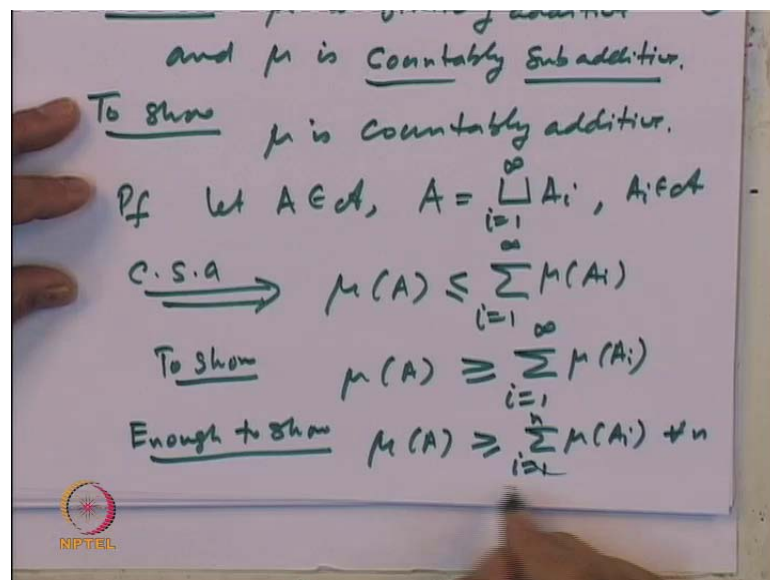 μ is finitely additive
and μ is Countably Subadditive.
To show μ is countably additive.
Pf let A ∈ 𝒜, A = ⨆_{i=1}^{∞} Ai, Ai ∈ 𝒜
C.S.a ⟹ μ(A) ≤ ∑_{i=1}^{∞} μ(Ai)
To show μ(A) ≥ ∑_{i=1}^{∞} μ(Ai)
Enough to show μ(A) ≥ ∑_{i=1}^{n} μ(Ai) ∀ n
NPTEL